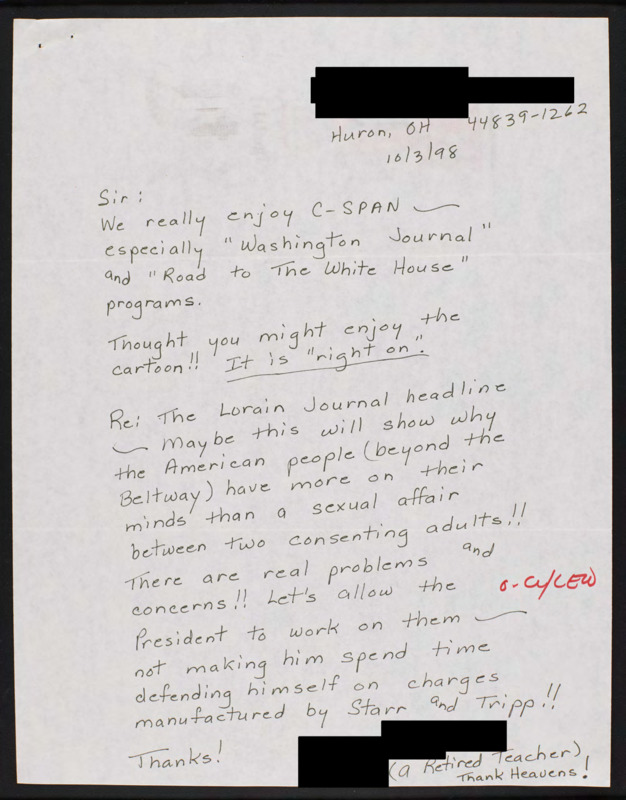 Huron, OH 44839-1262
10/3/98
Sir:
We really enjoy C-SPAN —
especially "Washington Journal"
and "Road to The White House"
programs.
Thought you might enjoy the
cartoon!! It is "right on".
Re: The Lorain Journal headline
— Maybe this will show why
the American people (beyond the
Beltway) have more on their
minds than a sexual affair
between two consenting adults!!
There are real problems and
concerns!! Let's allow the
President to work on them —
not making him spend time
defending himself on charges
manufactured by Starr and Tripp!!
Thanks!
(a Retired Teacher)
Thank Heavens!